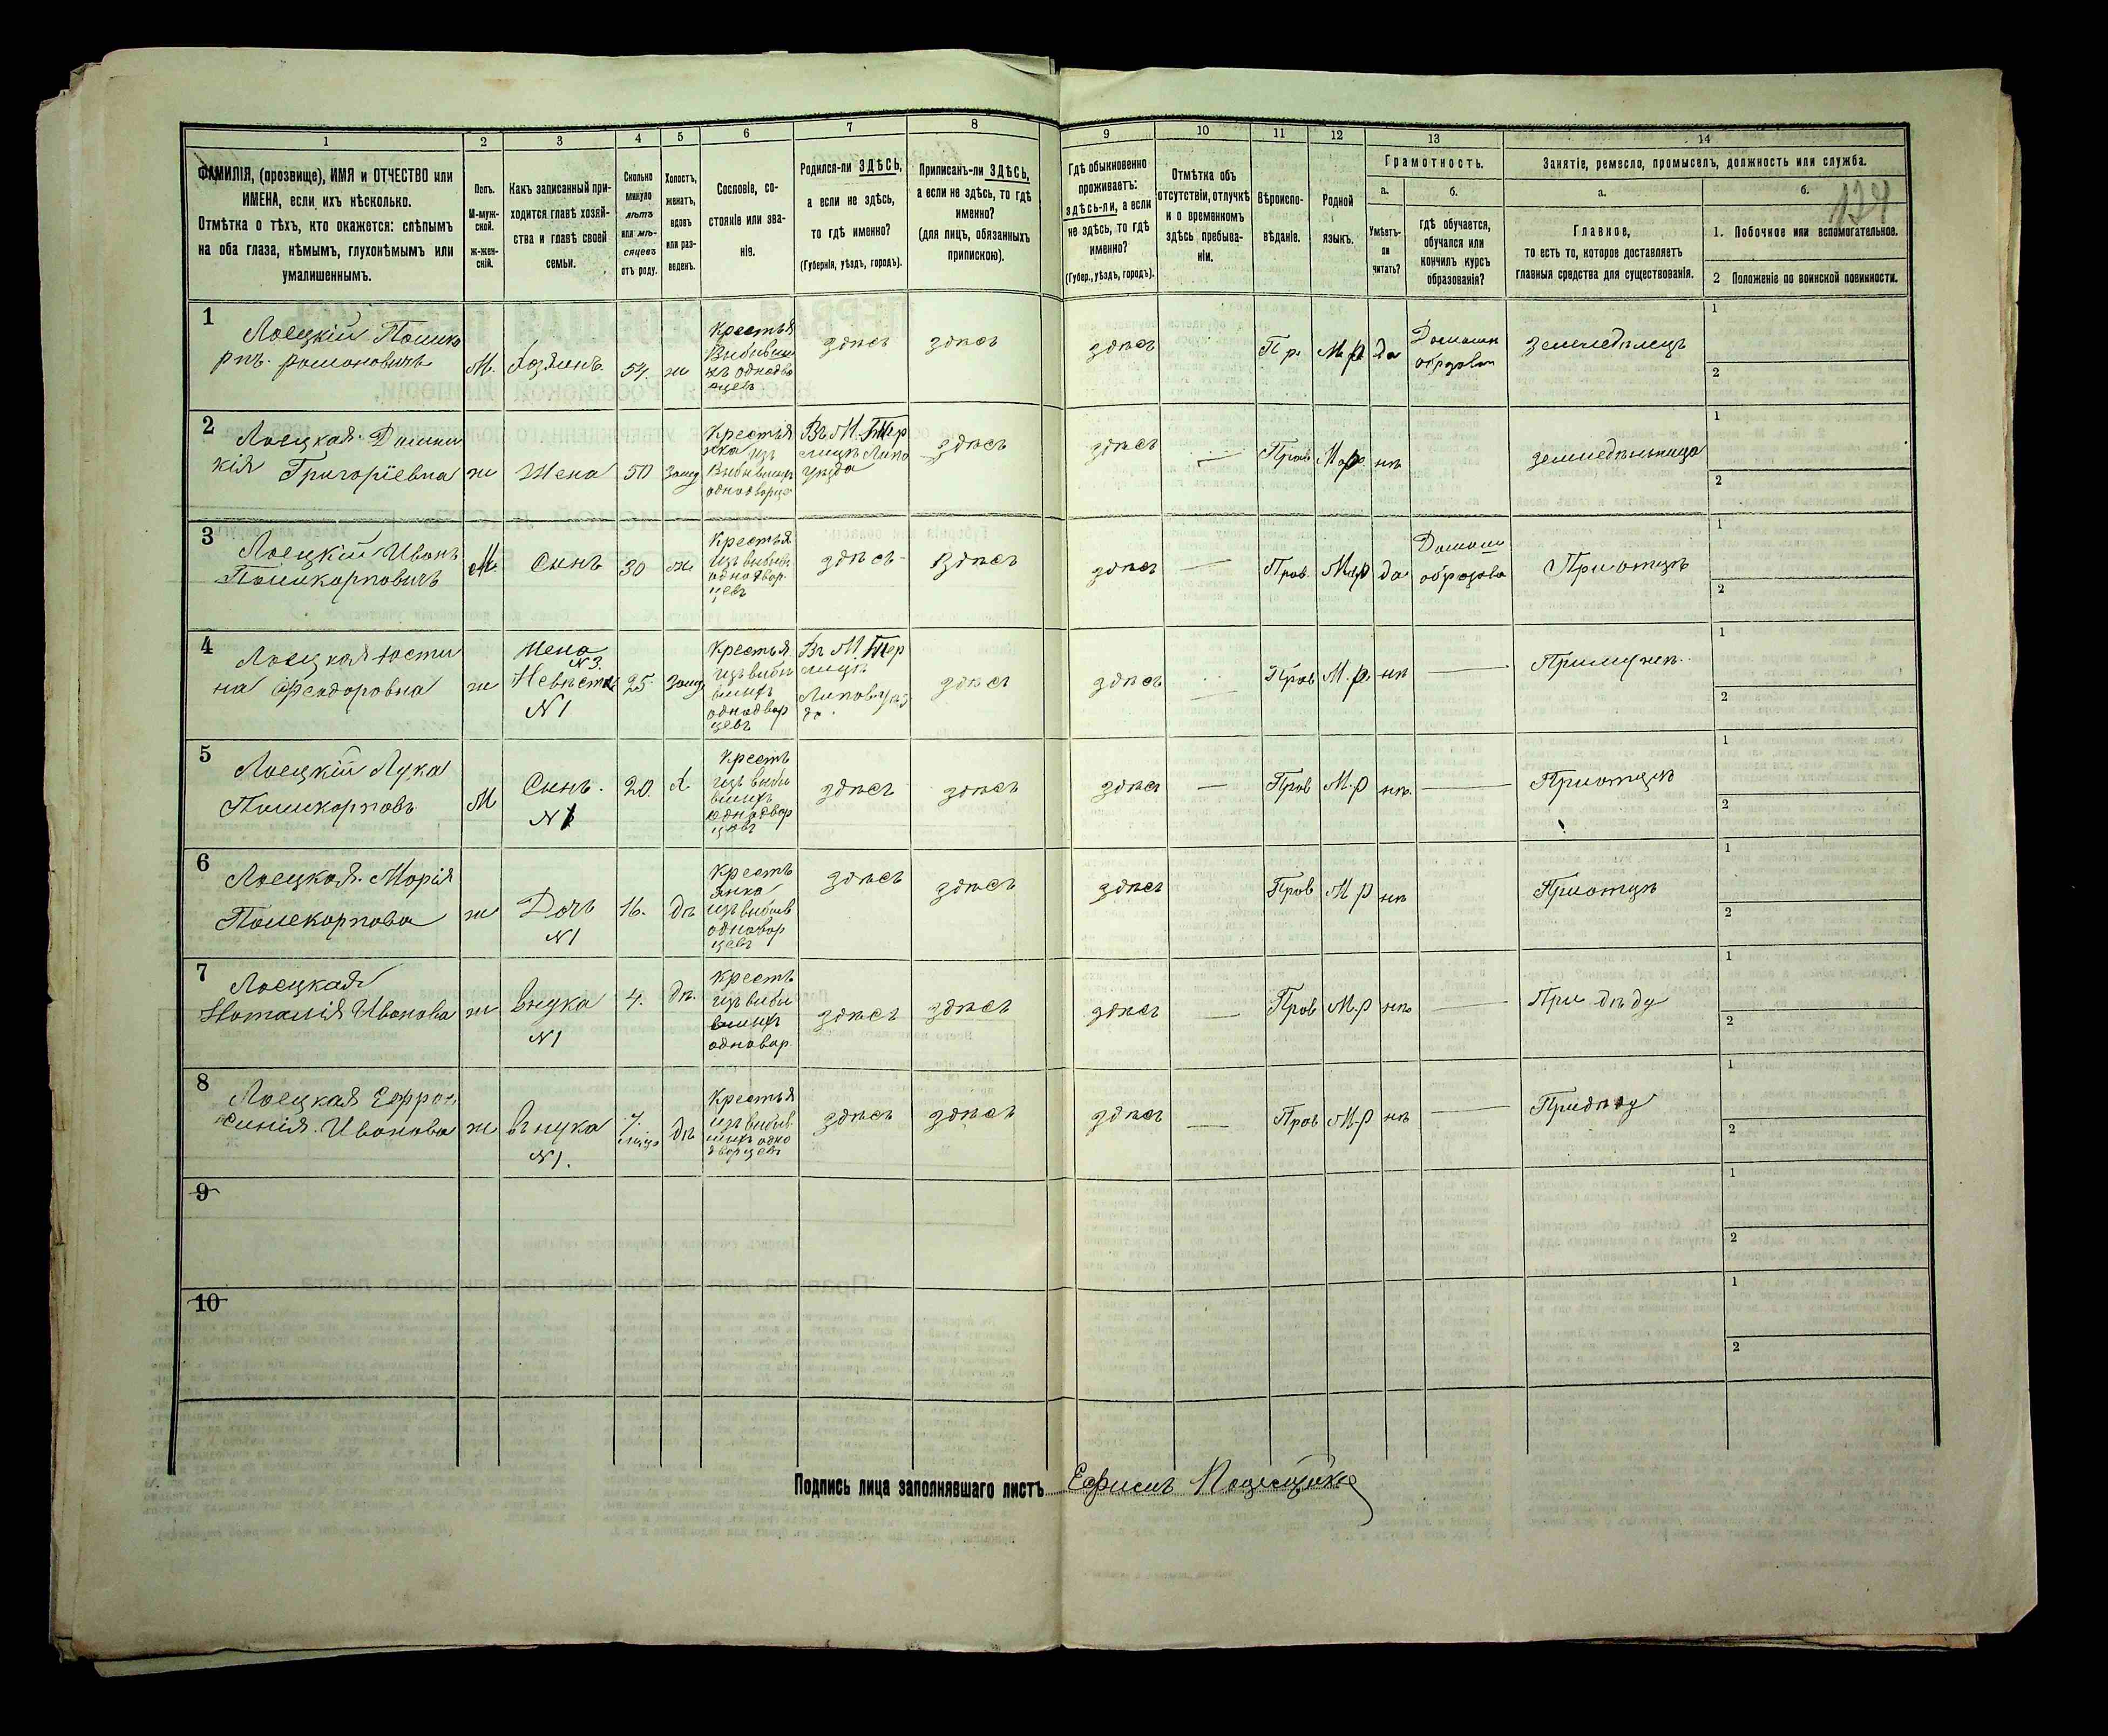 1
2
3
4
5
6
7
8
9
10
11
12
13
14
ФАМИЛІЯ, (прозвище), ИМЯ и ОТЧЕСТВО или
ИМЕНА, если ихъ нѣсколько.
Отмѣтка о тѣхъ, кто окажется: слѣпымъ
на оба глаза, нѣмымъ, глухонѣмымъ или
умалишеннымъ.
Полъ.
М-муж-
ской.
ж-жен-
скій.
Какъ записанный при-
ходится главѣ хозяй-
ства и главѣ своей
семьи.
Сколько
минуло
лѣтъ
или мѣ-
сяцевъ
отъ роду.
Холостъ,
женатъ,
вдовъ
или раз-
веденъ.
Сословіе, со-
стояніе или зва-
ніе.
Родился-ли ЗДѢСЬ,
а если не здѣсь,
то гдѣ именно?
(Губернія, уѣздъ, городъ).
Приписанъ-ли ЗДѢСЬ,
а если не здѣсь, то гдѣ
именно?
(для лицъ, обязанныхъ
припискою).
Гдѣ обыкновенно
проживаетъ:
здѣсь-ли, а если
не здѣсь, то гдѣ
именно?
(Губер., уѣздъ, городъ).
Отмѣтка объ
отсутствіи, отлучкѣ
и о временномъ
здѣсь пребыва-
ніи.
Вѣроиспо-
вѣданіе.
Родной
языкъ.
Грамотность.
а.
Умѣетъ-
ли
читать?
б.
гдѣ обучается,
обучался или
кончилъ курсъ
образованія?
Занятіе, ремесло, промыселъ, должность или служба.
а.
Главное,
то есть то, которое доставляетъ
главныя средства для существованія.
б.
134
1. Побочное или вспомогательное.
2 Положеніе по воинской повинности.
1
Лоецкій Полико
рпъ Романовичъ
М.
Хозяинъ
54
ж
Крестья
Выбывши
хъ однодво
рцевъ
здѣсь
здѣсь
здѣсь
Пр.
М.р.
да
Домашн
образован
земледѣлецъ
1
2
2
Лоецкая Домини
кія Григоріевна
ж
Жена
50
Замуж
Крестья
нка изъ
выбывшихъ
однодворце
здѣсь
здѣсь
Прав
М.р.
нѣ
земледѣльница
1
2
3
Лоецкій Иванъ
Поликарповичъ
М.
Сынъ
30
ж
Крестья
изъ выбывш
однодвор
цевъ
здѣсь
здѣсь
здѣсь
Прав.
М.р
да
Домаш
образова
При отцѣ
1
2
4
Лоецкая Юсти
на Феодоровна
ж
Жена
N3.
Невѣстка
N1
25
Замуж
Крестья
изъ выбы
вшихъ
однодвор
цевъ
здѣсь
здѣсь
Прав
М.р.
нѣ
При мужѣ
1
2
5
Лоецкій Лука
Поликарповъ
М
Сынъ.
N1
20.
х
Кресть
изъ выбы
вшихъ
однодвор
цевъ
здѣсь
здѣсь
здѣсь
Прав
М.р
нѣ.
При отцѣ
1
2
6
Лоецкая Марія
Поликарпова
ж
Дочь
N1
16.
дѣ
Кресть
янка
изъ выбыв
однодвор
цевъ
здѣсь
здѣсь
здѣсь
Прав
М.р
нѣ
При отцѣ
1
2
7
Лоецкая
Наталія Иванова
ж
Внука
N1
4.
дѣ.
Кресть
изъ выбы
вшихъ
однодвор
здѣсь
здѣсь
здѣсь
Прав
М.р
нѣ
При дѣду
1
2
8
Лоецкая Ефро
синія Иванова
ж
Внука
N1.
7.
дѣ
Крестья
изъ выбыв
шихъ одно
дворцевъ
здѣсь
здѣсь
здѣсь
Прав
М.р
нѣ
При дѣду
1
2
9
1
2
10
1
2
Подпись лица заполнявшаго листъ